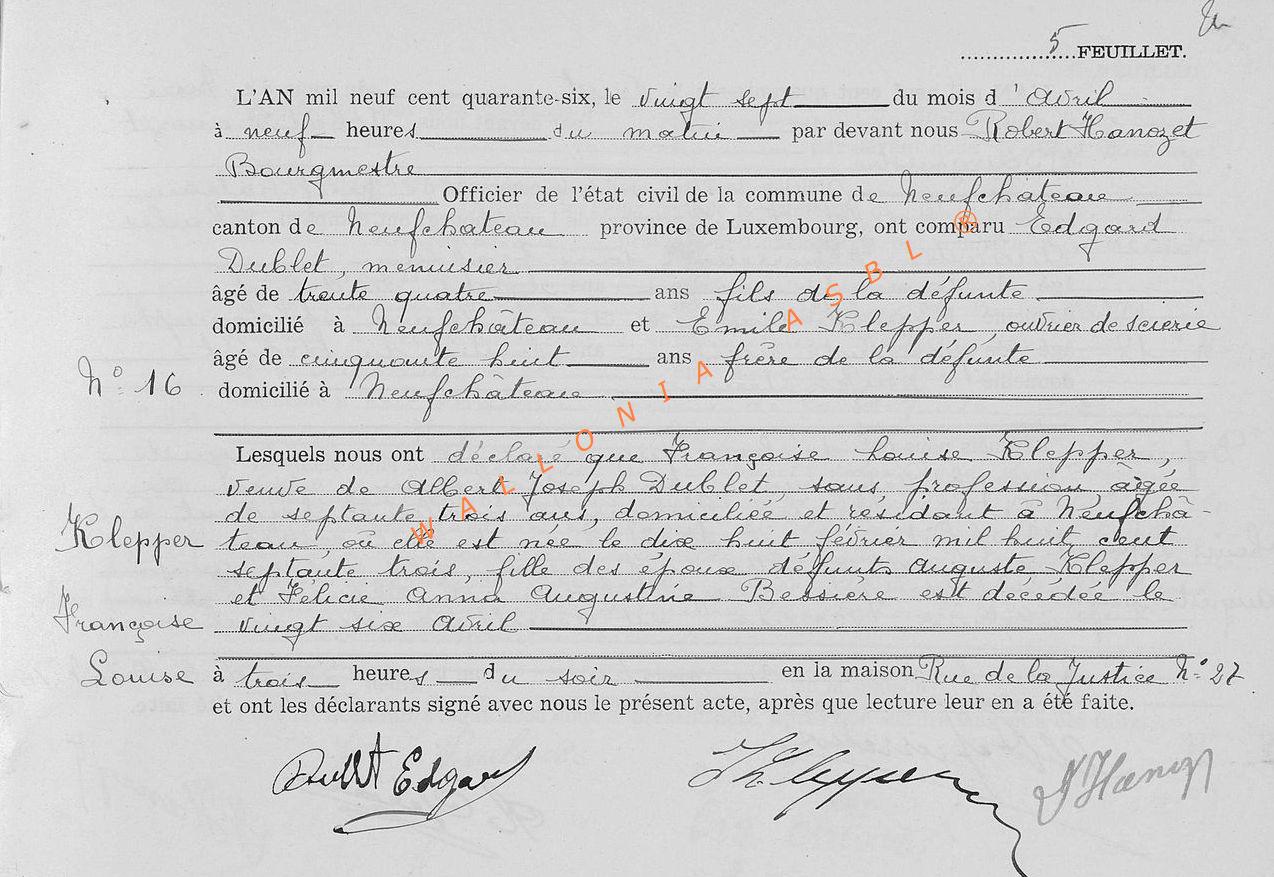 5 FEUILLET.
L'AN mil neuf cent quarante-six, le vingt sept du mois d'Avril
à neuf heures du matin par devant nous Robert Hanozet
Bourgmestre
Officier de l'état civil de la commune de Neufchateau
canton de Neufchateau province de Luxembourg, ont comparu Edgard
Dublet, menuisier
âgé de trente quatre ans fils de la défunte
domicilié à Neufchâteau et Emile Klepper ouvrier de scierie
âgé de cinquante huit ans frère de la défunte
N° 16 domicilié à Neufchâteau
Lesquels nous ont déclaré que Françoise Louise Klepper,
veuve de Albert Joseph Dublet, sans profession, âgée
de septante trois ans, domiciliée et résidant à Neufchâ-
Klepper teau, où elle est née le dix huit février mil huit cent
septante trois, fille des époux défunts Auguste Klepper
et Félicie Anna Augustine Bessière est décédée le
Françoise vingt six Avril
Louise à trois heures du soir en la maison Rue de la Justice N° 27
et ont les déclarants signé avec nous le présent acte, après que lecture leur en a été faite.
Dublet Edgard Klepper Hanoz
WALLONIA ASBL ®